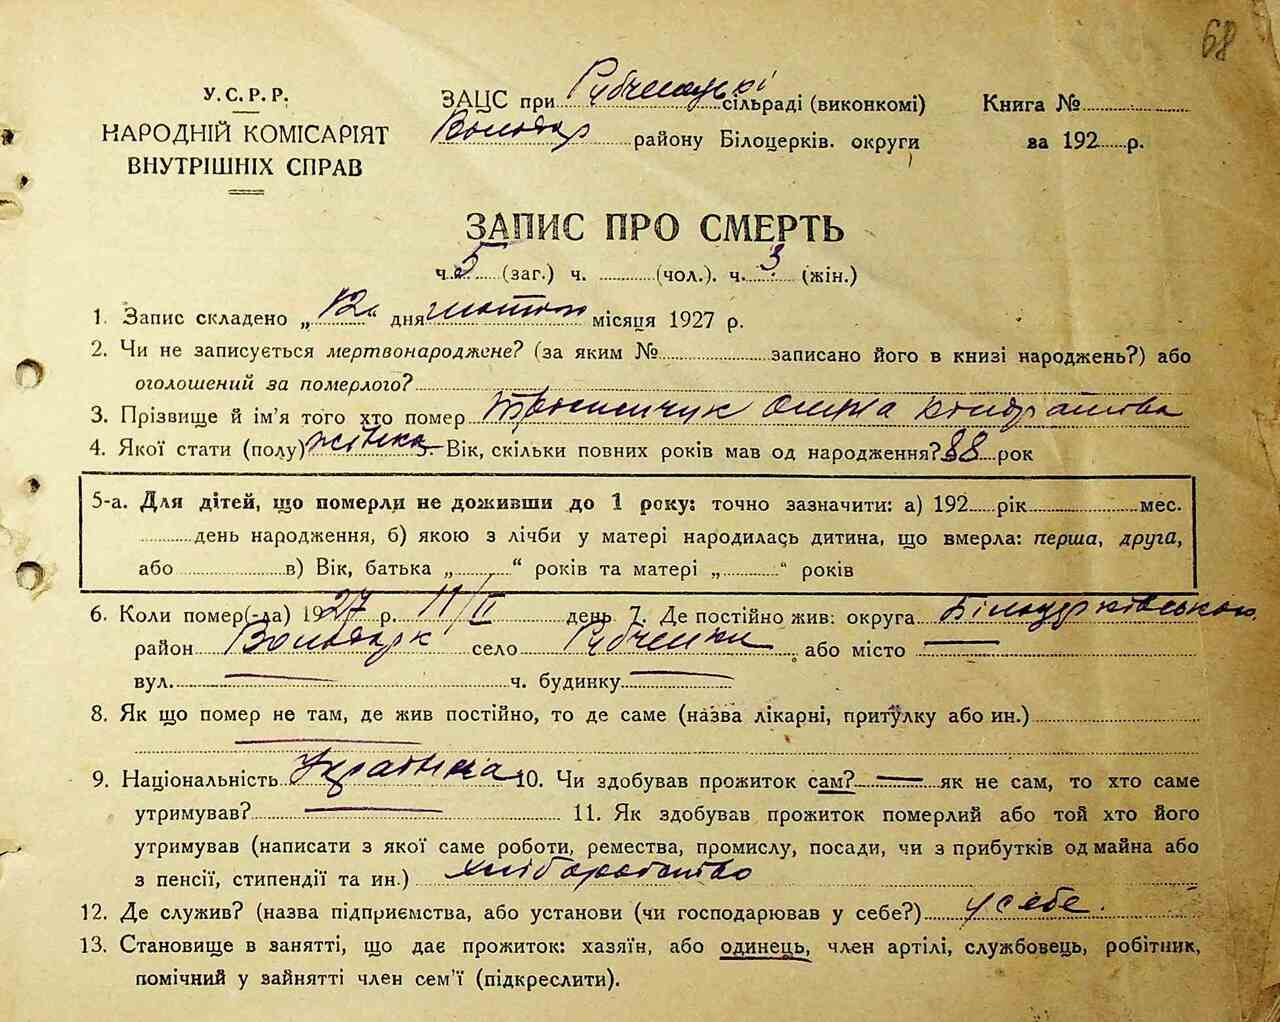 68
У.С.Р.Р.
НАРОДНІЙ КОМІСАРІЯТ
ВНУТРІШНІХ СПРАВ
ЗАЦС при Рубченській сільраді (виконкомі)
Володар району Білоцерків. округи
Книга №
за 192 р.
ЗАПИС ПРО СМЕРТЬ
ч. 5 (заг.) ч. (чол.). ч. 3 (жін.)
1. Запис складено „12" дня лютого місяця 1927 р.
2. Чи не записується мертвонароджене? (за яким № записано його в книзі народжень?) або
оголошений за померлого?
3. Прізвище й ім'я того хто помер Кондратова
4. Якої стати (полу) жінка 5. Вік, скільки повних років мав од народження? 88 рок
5-а. Для дітей, що померли не доживши до 1 року: точно зазначити: а) 192 рік мес.
день народження, б) якою з лічби у матері народилась дитина, що вмерла: перша, друга,
або в) Вік, батька „ “ років та матері „ “ років
6. Коли помер(-ла) 1927 р. 11/II день 7. Де постійно жив: округа Білоцерківськой
район Володарк село Рубченки або місто —
вул. — ч. будинку —
8. Як що помер не там, де жив постійно, то де саме (назва лікарні, притулку або ин.)
—
9. Національність Українка 10. Чи здобував прожиток сам? — як не сам, то хто саме
утримував? — 11. Як здобував прожиток померлий або той хто його
утримував (написати з якої саме роботи, ремества, промислу, посади, чи з прибутків од майна або
з пенсії, стипендії та ин.) хліборобство
12. Де служив? (назва підприємства, або установи (чи господарював у себе?) у себе.
13. Становище в занятті, що дає прожиток: хазяїн, або одинець, член артілі, службовець, робітник,
помічний у зайнятті член сем'ї (підкреслити).